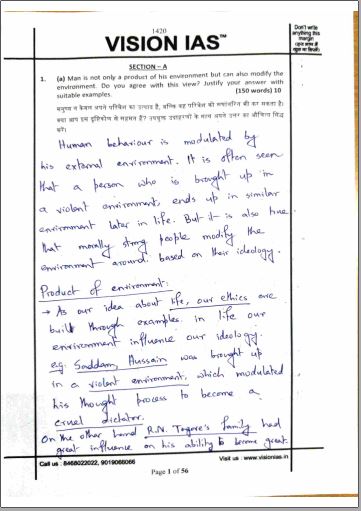 1420
VISION IAS™
Don't write anything this margin
SECTION – A
1. (a) Man is not only a product of his environment but can also modify the
environment. Do you agree with this view? Justify your answer with
suitable examples. (150 words) 10
मनुष्य न केवल अपने परिवेश का उत्पाद है, बल्कि वह परिवेश को रूपांतरित भी कर सकता है।
क्या आप इस दृष्टिकोण से सहमत हैं? उपयुक्त उदाहरणों के साथ अपने उत्तर का औचित्य सिद्ध
करें।
Human behaviour is modulated by
his external environment. It is often seen
that a person who is brought up in
a violent environment, ends up in similar
environment later in life. But it is also true
that morally strong people modify the
environment around based on their ideology.
Product of environment:
→ As our idea about life, our ethics are
built through examples in life our
environment influence our ideology.
eg: Saddam Hussain was brought up
in a violent environment, which modulated
his thought process to become a
cruel dictator.
On the other hand R.N. Tagore's family had
great influence on his ability to become great.
Call us : 8468022022, 9019066066
Visit us : www.visionias.in
Page 1 of 56